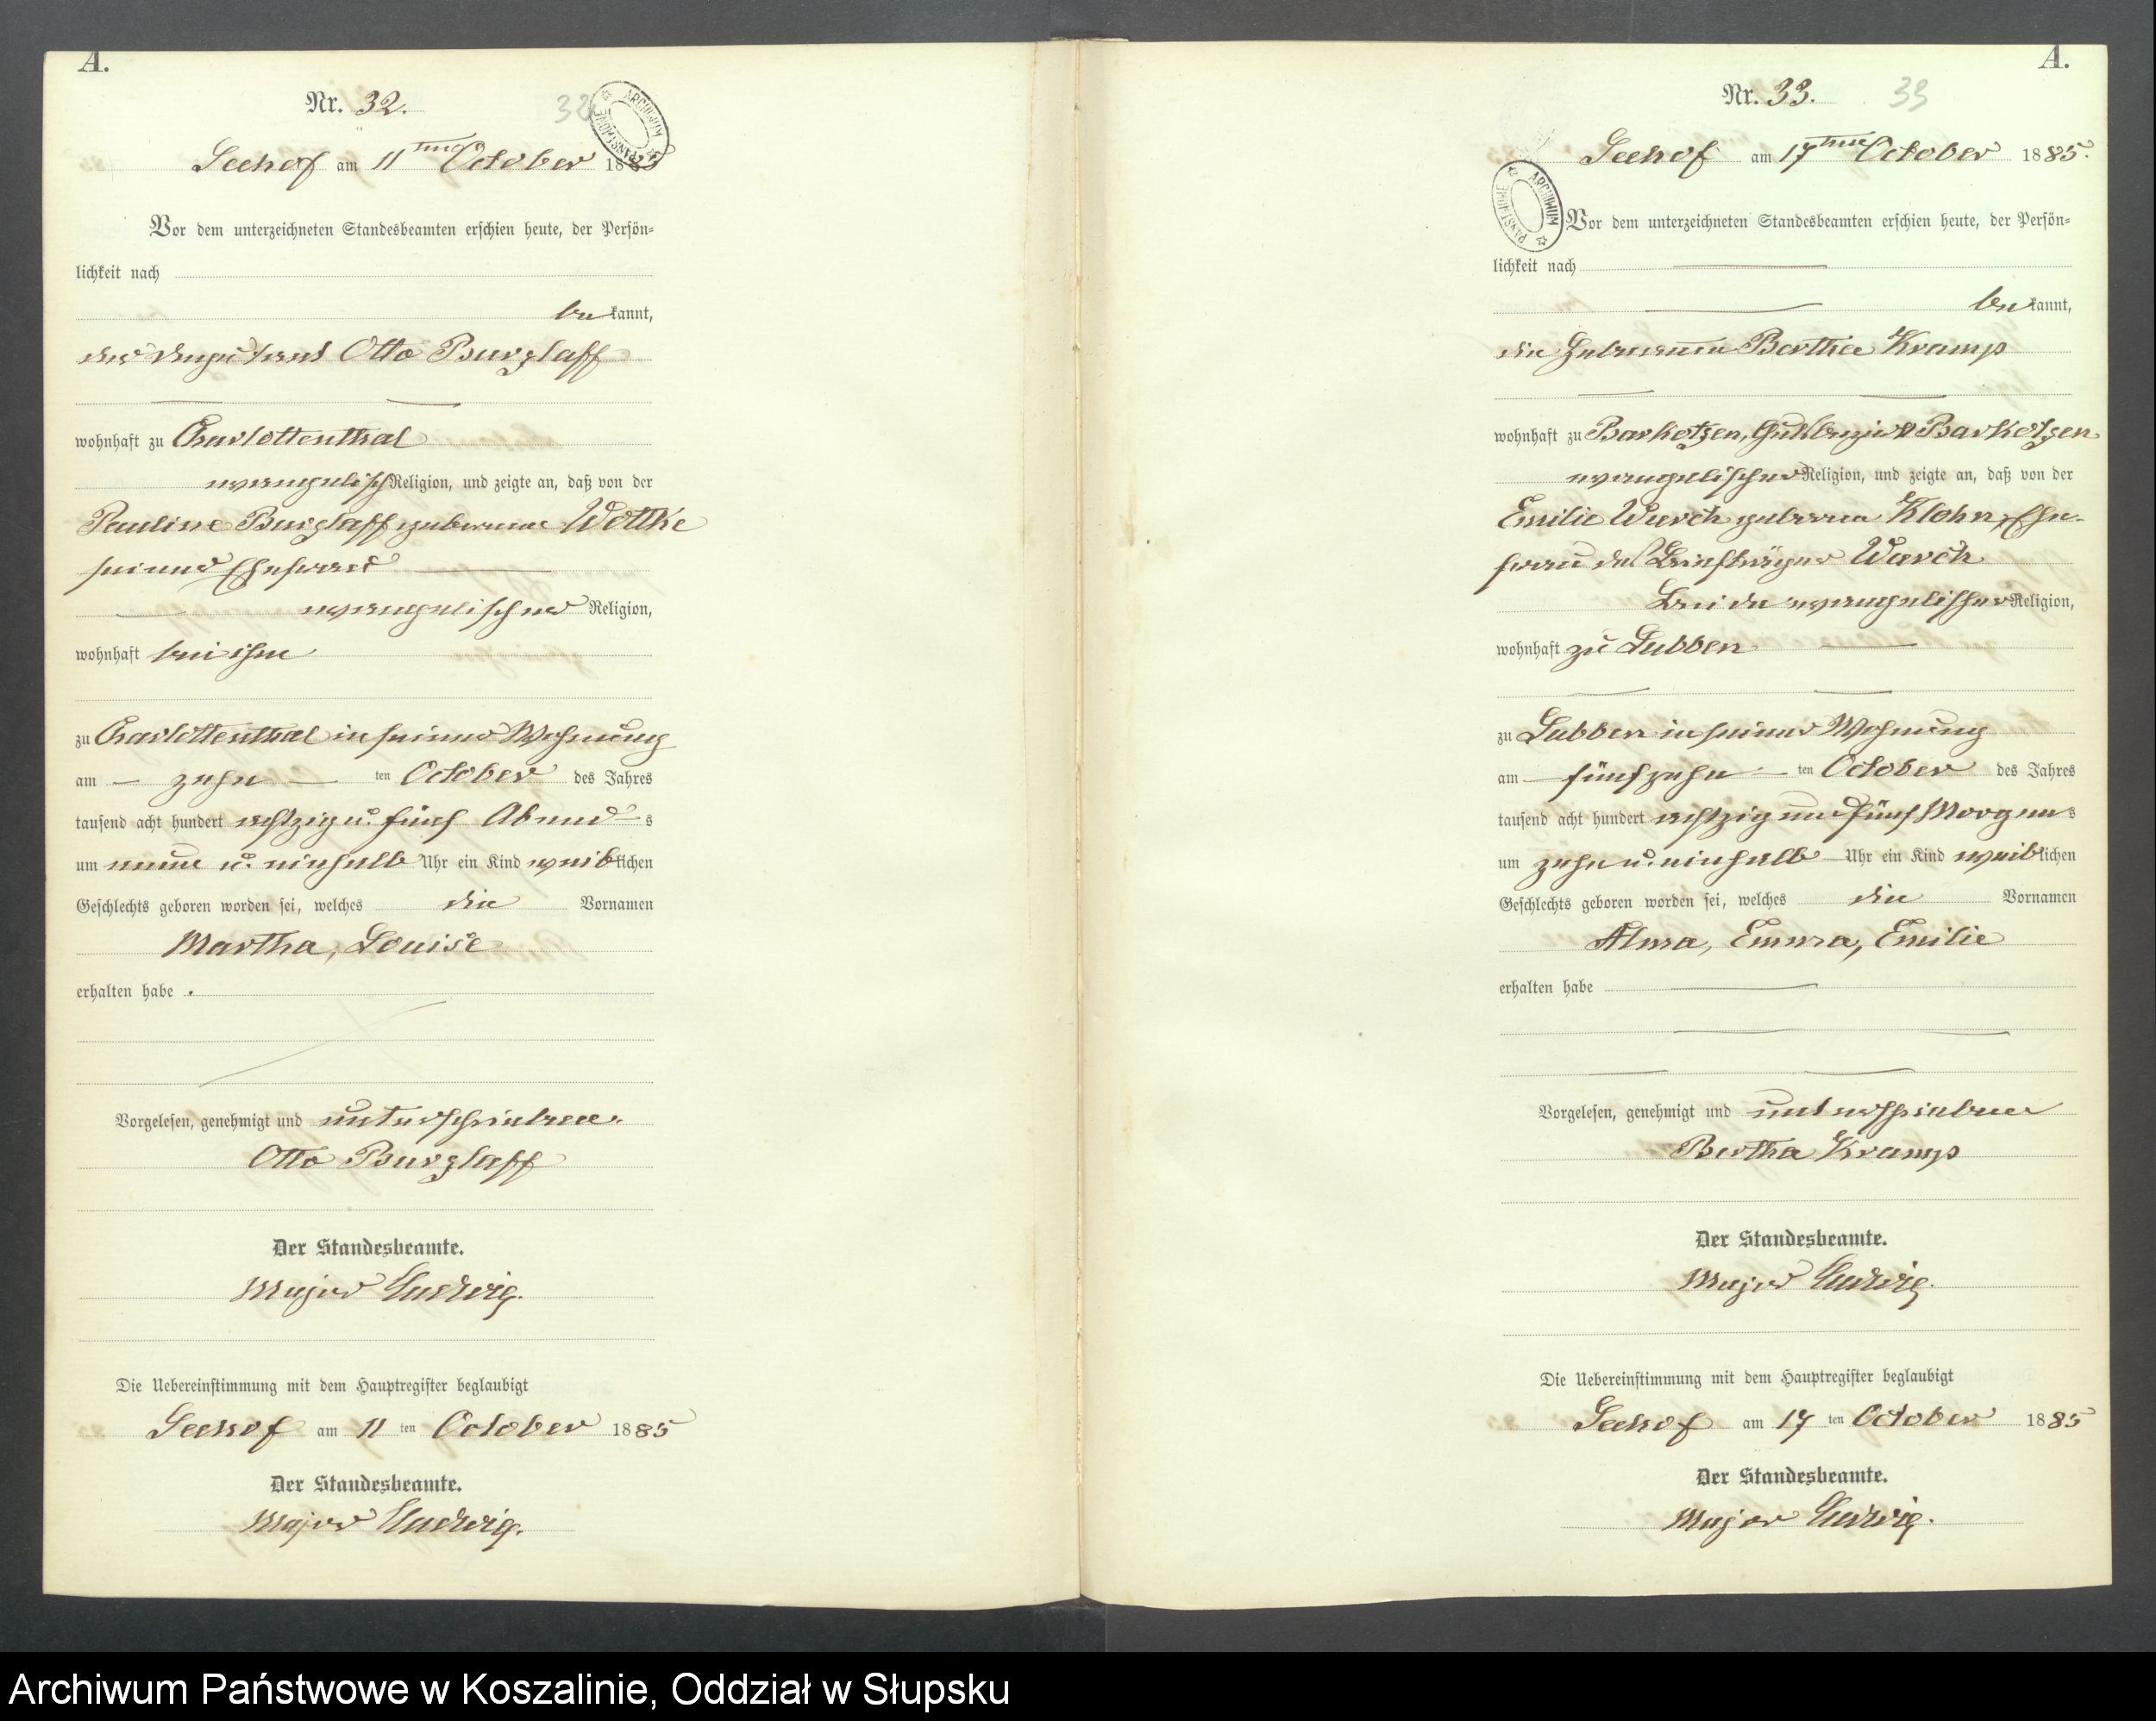 A.
Nr. 32.
32
ARCHIWUM PAŃSTWOWE
Seehof am 11ten October 1885
Vor dem unterzeichneten Standesbeamten erschien heute, der Persön=
lichkeit nach
be kannt,
der Otto Burzlaff
wohnhaft zu Charlottenthal
evangelisch Religion, und zeigte an, daß von der
Pauline Burzlaff geborene Wottke
seiner Ehefrau
evangelischer Religion,
wohnhaft bei ihm
zu Charlottenthal in seiner Wohnung
am zehn ten October des Jahres
tausend acht hundert achtzig u. fünf Abend s
um neun u. einhalb Uhr ein Kind weib lichen
Geschlechts geboren worden sei, welches die Vornamen
Martha, Louise
erhalten habe .
Vorgelesen, genehmigt und unterschrieben.
Otto Burzlaff
Der Standesbeamte.
Major Ludwig.
Die Uebereinstimmung mit dem Hauptregister beglaubigt
Seehof am 11 ten October 1885
Der Standesbeamte.
Major Ludwig.
A.
Nr. 33.
33
ARCHIWUM PAŃSTWOWE
Seehof am 17ten October 1885.
Vor dem unterzeichneten Standesbeamten erschien heute, der Persön=
lichkeit nach
be kannt,
die Hebamme Bertha Kramp
wohnhaft zu Barkotzen, Gutsbezirk Barkotzen
evangelischer Religion, und zeigte an, daß von der
Emilie Warch geborene Klohn, Ehe-
frau des Briefträger Warch
Beide evangelischer Religion,
wohnhaft zu Lubben
zu Lubben in seiner Wohnung
am fünfzehn ten October des Jahres
tausend acht hundert achtzig und fünf Morgen s
um zehn u. einhalb Uhr ein Kind weib lichen
Geschlechts geboren worden sei, welches die Vornamen
Alma, Emma, Emilie
erhalten habe
Vorgelesen, genehmigt und unterschrieben
Bertha Kramp
Der Standesbeamte.
Major Ludwig.
Die Uebereinstimmung mit dem Hauptregister beglaubigt
Seehof am 17 ten October 1885
Der Standesbeamte.
Major Ludwig.
Archiwum Państwowe w Koszalinie, Oddział w Słupsku